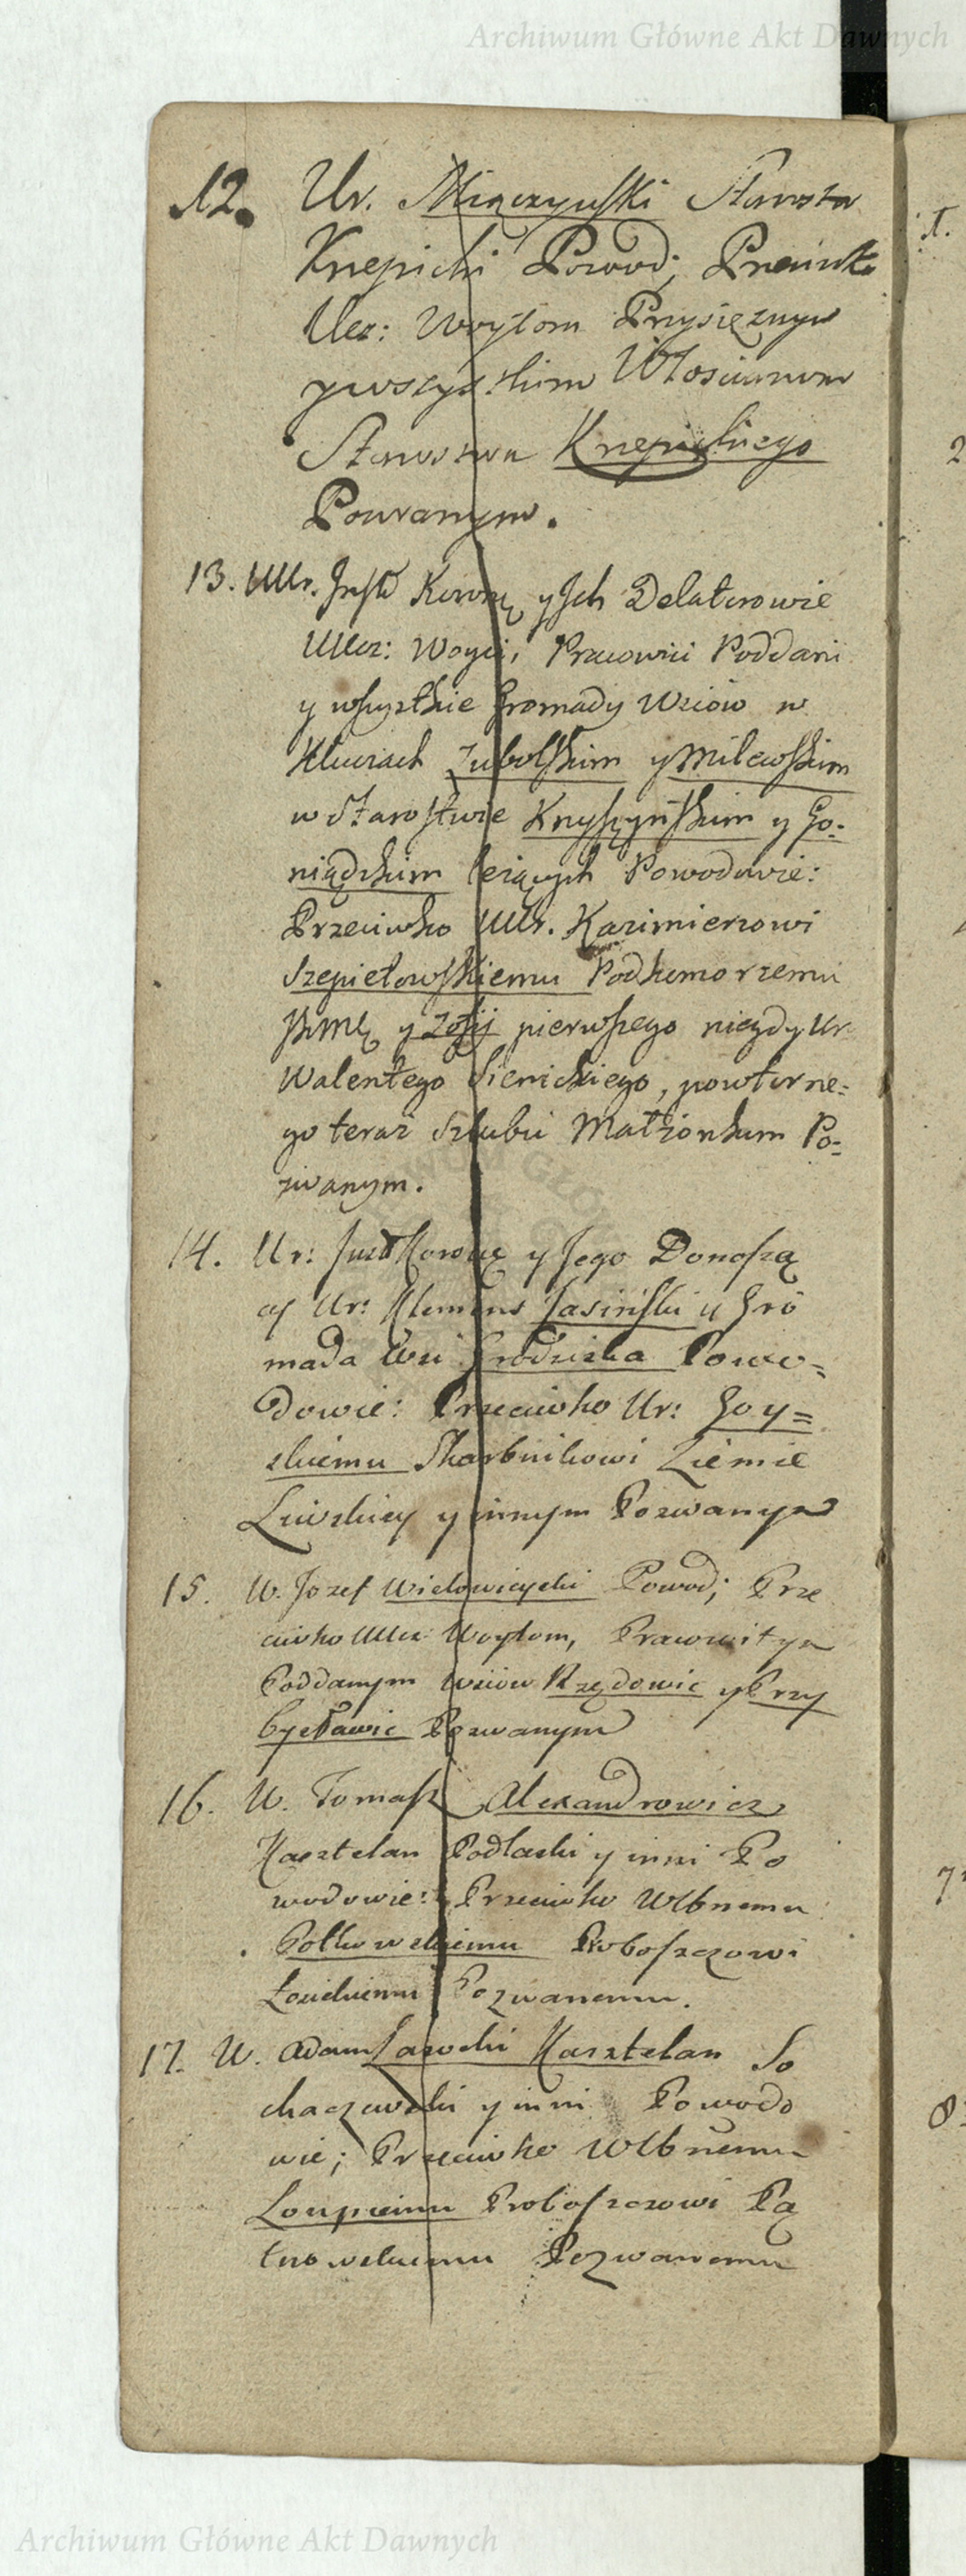 Archiwum Główne Akt Dawnych
12. Ur. Miączyński Starosta
Krzepicki Powod; Przeciwko
Ucz: Woytom Przysięznym
y wszystkim Włoscianom
Starostwa Krzepickiego
Pozwanym.
13. UUr. Inst Koronę y Ich Delatorowie
UUcz: Woyci, Pracowici Poddani
y wszystkie Gromady Wsiów w
Kluczach Zubolskim y Milewskim
w Starostwie Knyszyńskim y Go=
niądzkim leżących Powodowie:
Przeciwko UUr. Kazimierzowi
Szepietowskiemu Podkomorzemu
JKMĘ y Zofij pierwszego niegdy Ur
Walentego Sienickiego, powtorne=
go teraz Szlubu Matżonkom Po=
zwanym.
14. Ur: Inst Koronę y Jego Donoszą
cy Ur: Klemens Jasiński y Gro
mada Wsi Grodziska Powo=
dowie: Przeciwko Ur: Goy=
skiemu Skarbnikowi Ziemie
Liwskiey y innym Pozwanym
15. W. Jozef Wielowieyski Powod; Prze
ciwko UUcz Woytom, Pracowitym
Poddanym Wsiów Rzędowic y Przy
bysławic Pozwanym
16. W. Tomasz Alexandrowicz
Kasztelan Podlaski y inni Po
wodowie: Przeciwko Wlbnemu
Proboszczowi
Łosickiemu Pozwanemu.
17. W. Adam Lasocki Kasztelan So
chaczewski y inni Powodo
wie; Przeciwko Wlbnemu
Proboszczowi Pą
Pozwanemu
Archiwum Główne Akt Dawnych